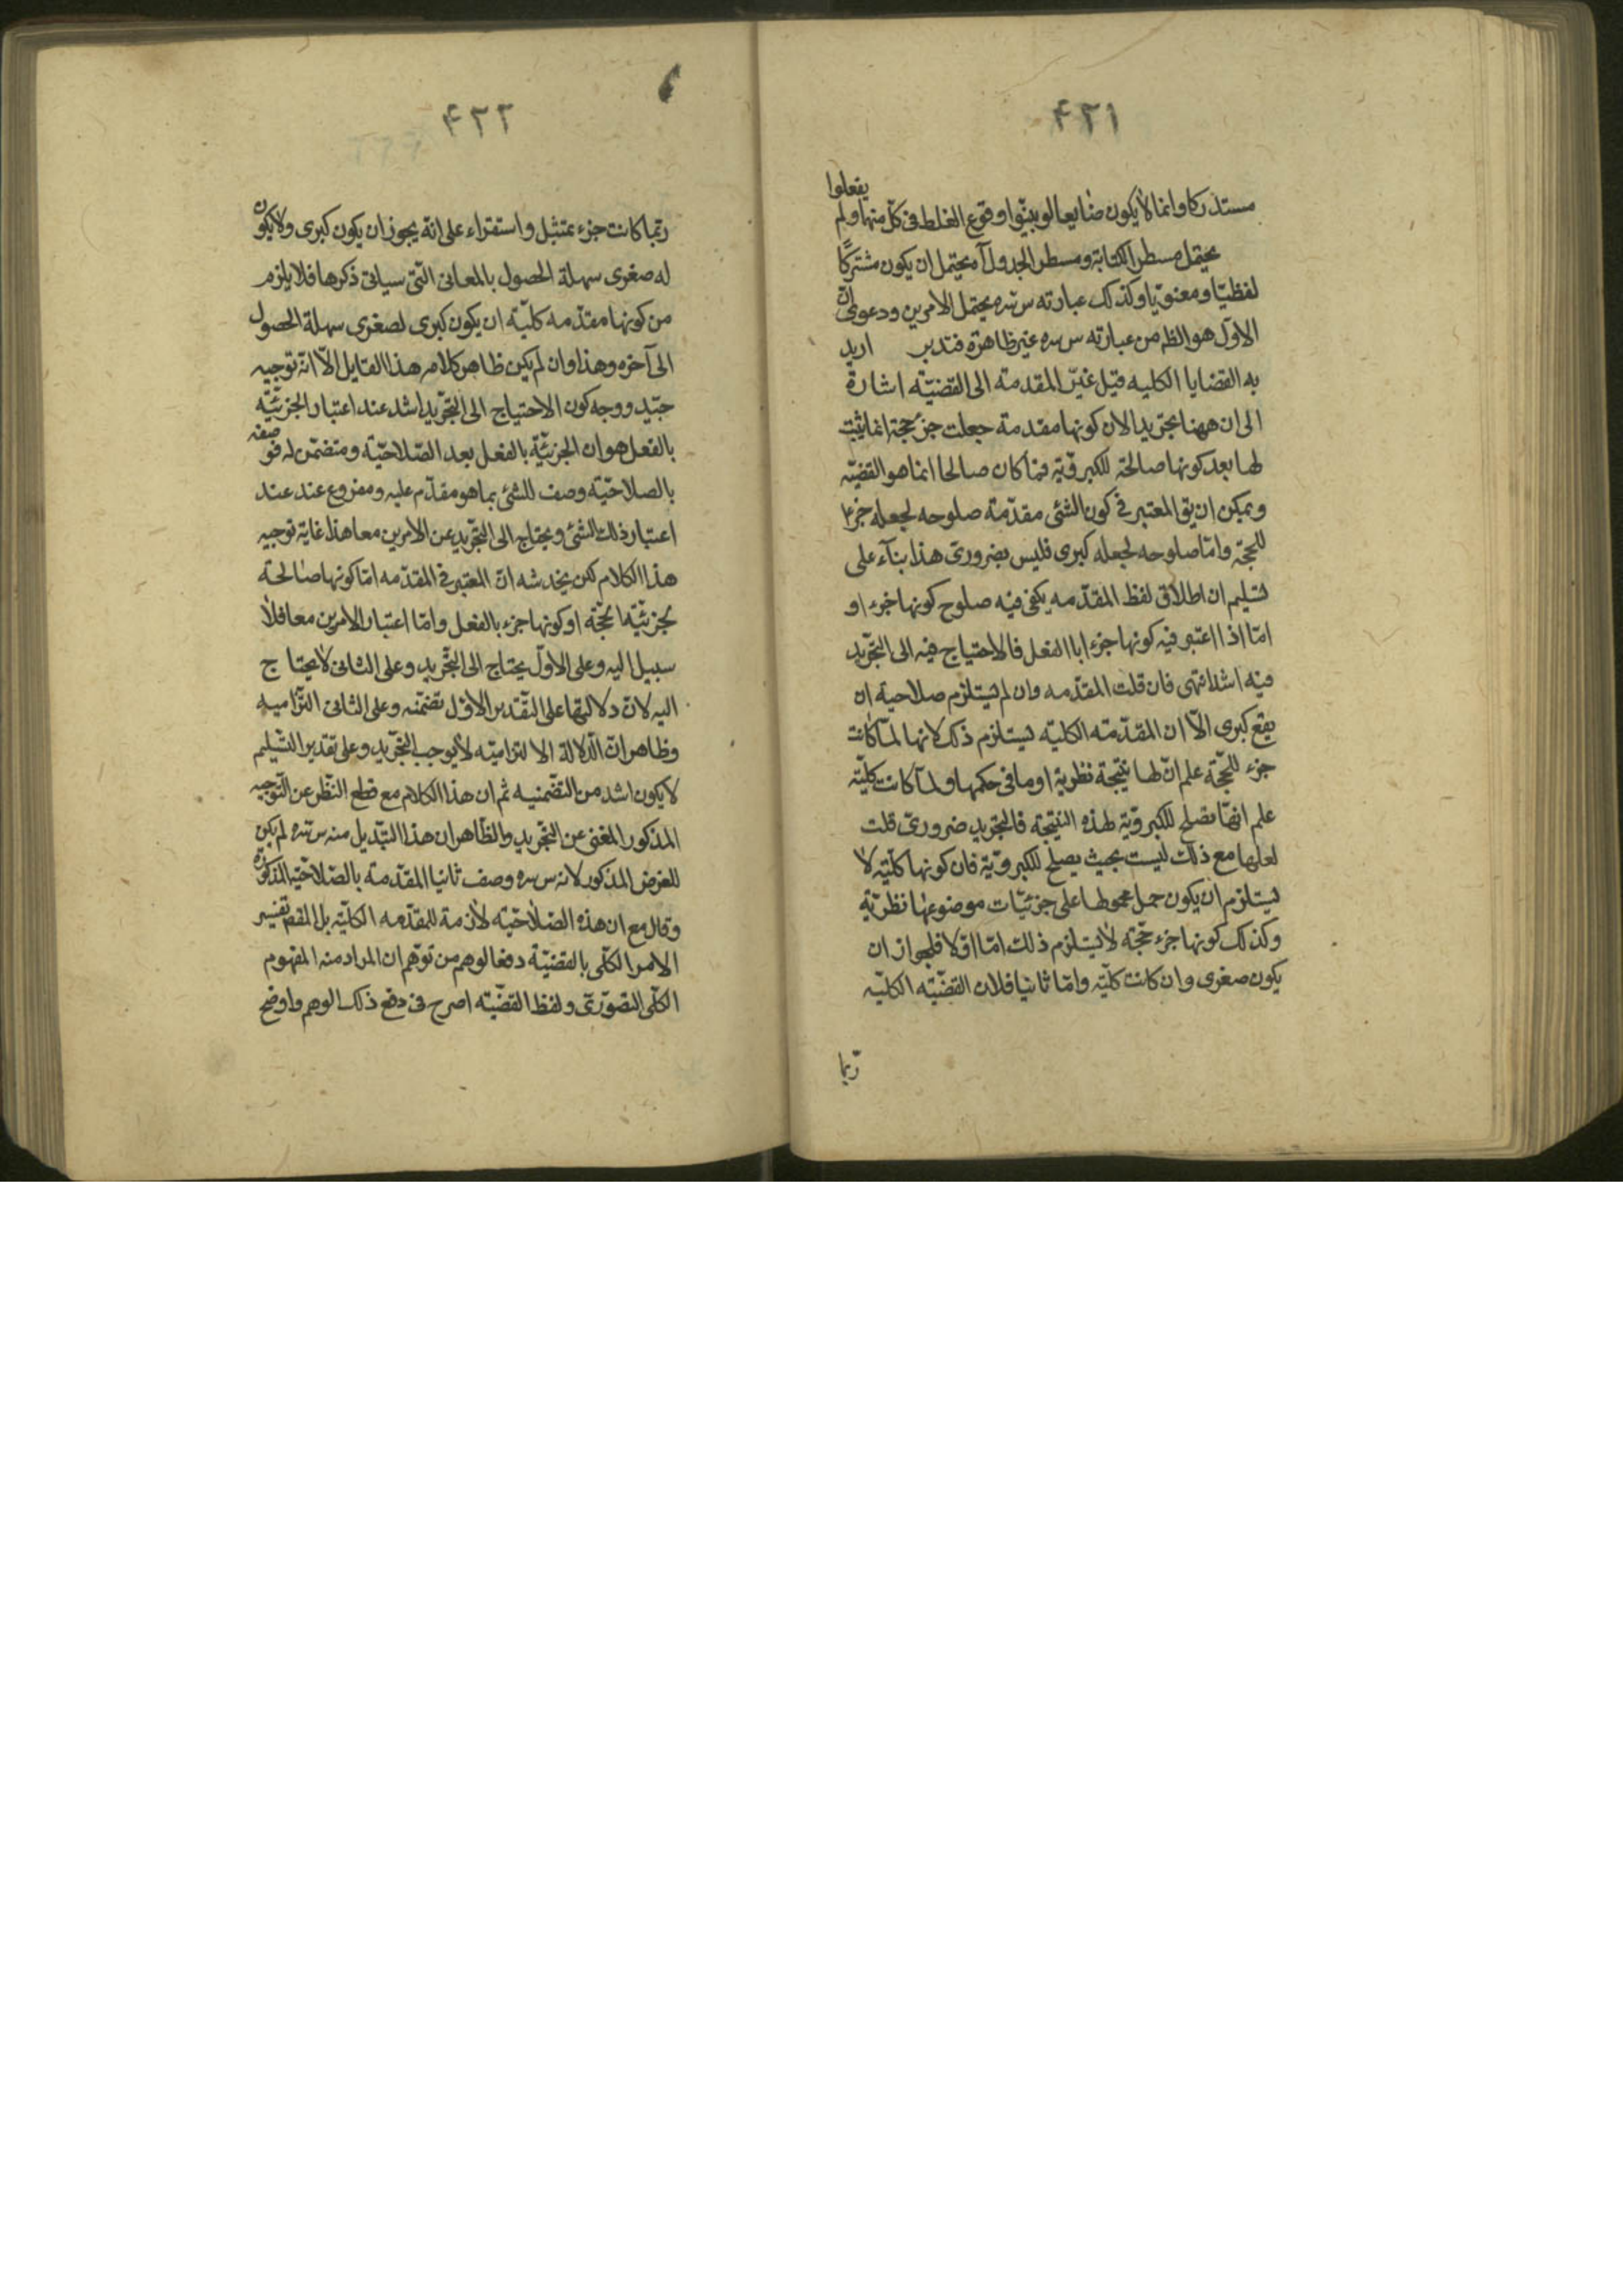 ۴۲۱
يفعلوا
مستدركا وانما لا يكون ضايعا لو بينوا وقوع الغلط فى كل منهما ولم
يحتمل مسطر الكتابة ومسطر الجدول آ محتمل ان يكون مشتركًا
لفظيّا ومعنويّا وكذلك عبارته س سره يحتمل الامرين ودعوى انّ
الاوّل هو الظ من عبارته س سره غير ظاهرة فتدبر اريد
به القضايا الكليه قيل غيّر المقدمة الى القضيّة اشارة
الى ان ههنا تجريدا لان كونها مقدمة جعلت جزء حجة انما يثبت
لها بعد كونها صالحة للكبرويّة فما كان صالحا انما هو القضيّة
ويمكن ان يق المعتبر فى كون الشئ مقدّمة صلوحه لجعله جزءا
للحجّة وامّا صلوحه لجعله كبرى فليس بضرورى هذا بناء على
تسليم ان اطلاق لفظ المقدّمه يكفى فيه صلوح كونها جزء او
امّا اذا اعتبر فيه كونها جزءا با الفعل فالاحتياج فيه الى التجريد
فيه اشد انتهى فان قلت المقدّمه وان لم يستلزم صلاحية ان
يقع كبرى الّا ان المقدّمة الكليّه يستلزم ذلك لانها لمّا كانت
جزء للحجّة علم انّ لها نتيجة نظرية او ما فى حكمها ولمّا كانت كليّة
علم انهّا تصلح للكبرويّة لهذه النتيجة فالتجريد ضرورىّ قلت
لعلها مع ذلك ليست بحيث يصلح للكبرويّة فان كونها كليّة لا
يستلزم ان يكون حمل محمولها على جزئيّات موضوعها نظريّة
وكذلك كونها جزء حجّة لا يستلزم ذلك امّا اوّلا فلجواز ان
يكون صغرى وان كانت كليّة وامّا ثانيا فلان القضيّه الكليّه
ربّما
۴۲۲
ربّما كانت جزء تمثيل واستقراء على انّه يجوز ان يكون كبرى ولا يكون
له صغرى سهلة الحصول بالمعانى الّتى سياتى ذكرها فلا يلزم
من كونها مقدّمه كليّه ان يكون كبرى لصغرى سهلة الحصول
الى آخره وهذا وان لم يكن ظاهر كلام هذا القايل الّا انّه توجيه
جيّد ووجه كون الاحتياج الى التجريد اشد عند اعتبار الجزئيّة
بالفعل هو ان الجزئيّة بالفعل بعد الصّلاحيّة ومتضمّن له فوصفه
بالصلاحيّة وصف للشئ بما هو مقدّم عليه ومفروع عند عند
اعتبار ذلك الشئ ويحتاج الى التجريد عن الامرين معا هذا غاية توجيه
هذا الكلام لكن يخدشه انّ المعتبر فى المقدّمه امّا كونها صالحة
لجزئيّة الحجّة او كونها جزء بالفعل وامّا اعتبار الامرين معا فلا
سبيل اليه وعلى الاوّل يحتاج الى التجريد وعلى الثانى لا يحتاج
اليه لانّ دلالتها على التقدير الاوّل تضمّنه وعلى الثانى التزاميه
وظاهر انّ الدّلالة الالتزاميّه لا يوجب التجريد وعلى تقدير التسليم
لا يكون اشد من التضمنيه ثم ان هذا الكلام مع قطع النّظر عن التّوجيه
المذكور المغنى عن التجريد والظّاهر ان هذا التبديل منه س سره لم يكن
للغرض المذكور لانه س سره وصف ثانيا المقدّمة بالصّلاحيّة المذكورة
وقال مع ان هذه الصّلاحيّة لازمة للمقدّمه الكليّه بل المقصم تفسير
الامر الكلّى بالقضيّة دفعا لوهم من توهّم ان المراد منه المفهوم
الكلّى التصوّرىّ ولفظ القضيّة اصرح فى دفع ذلك الوهم واوضح